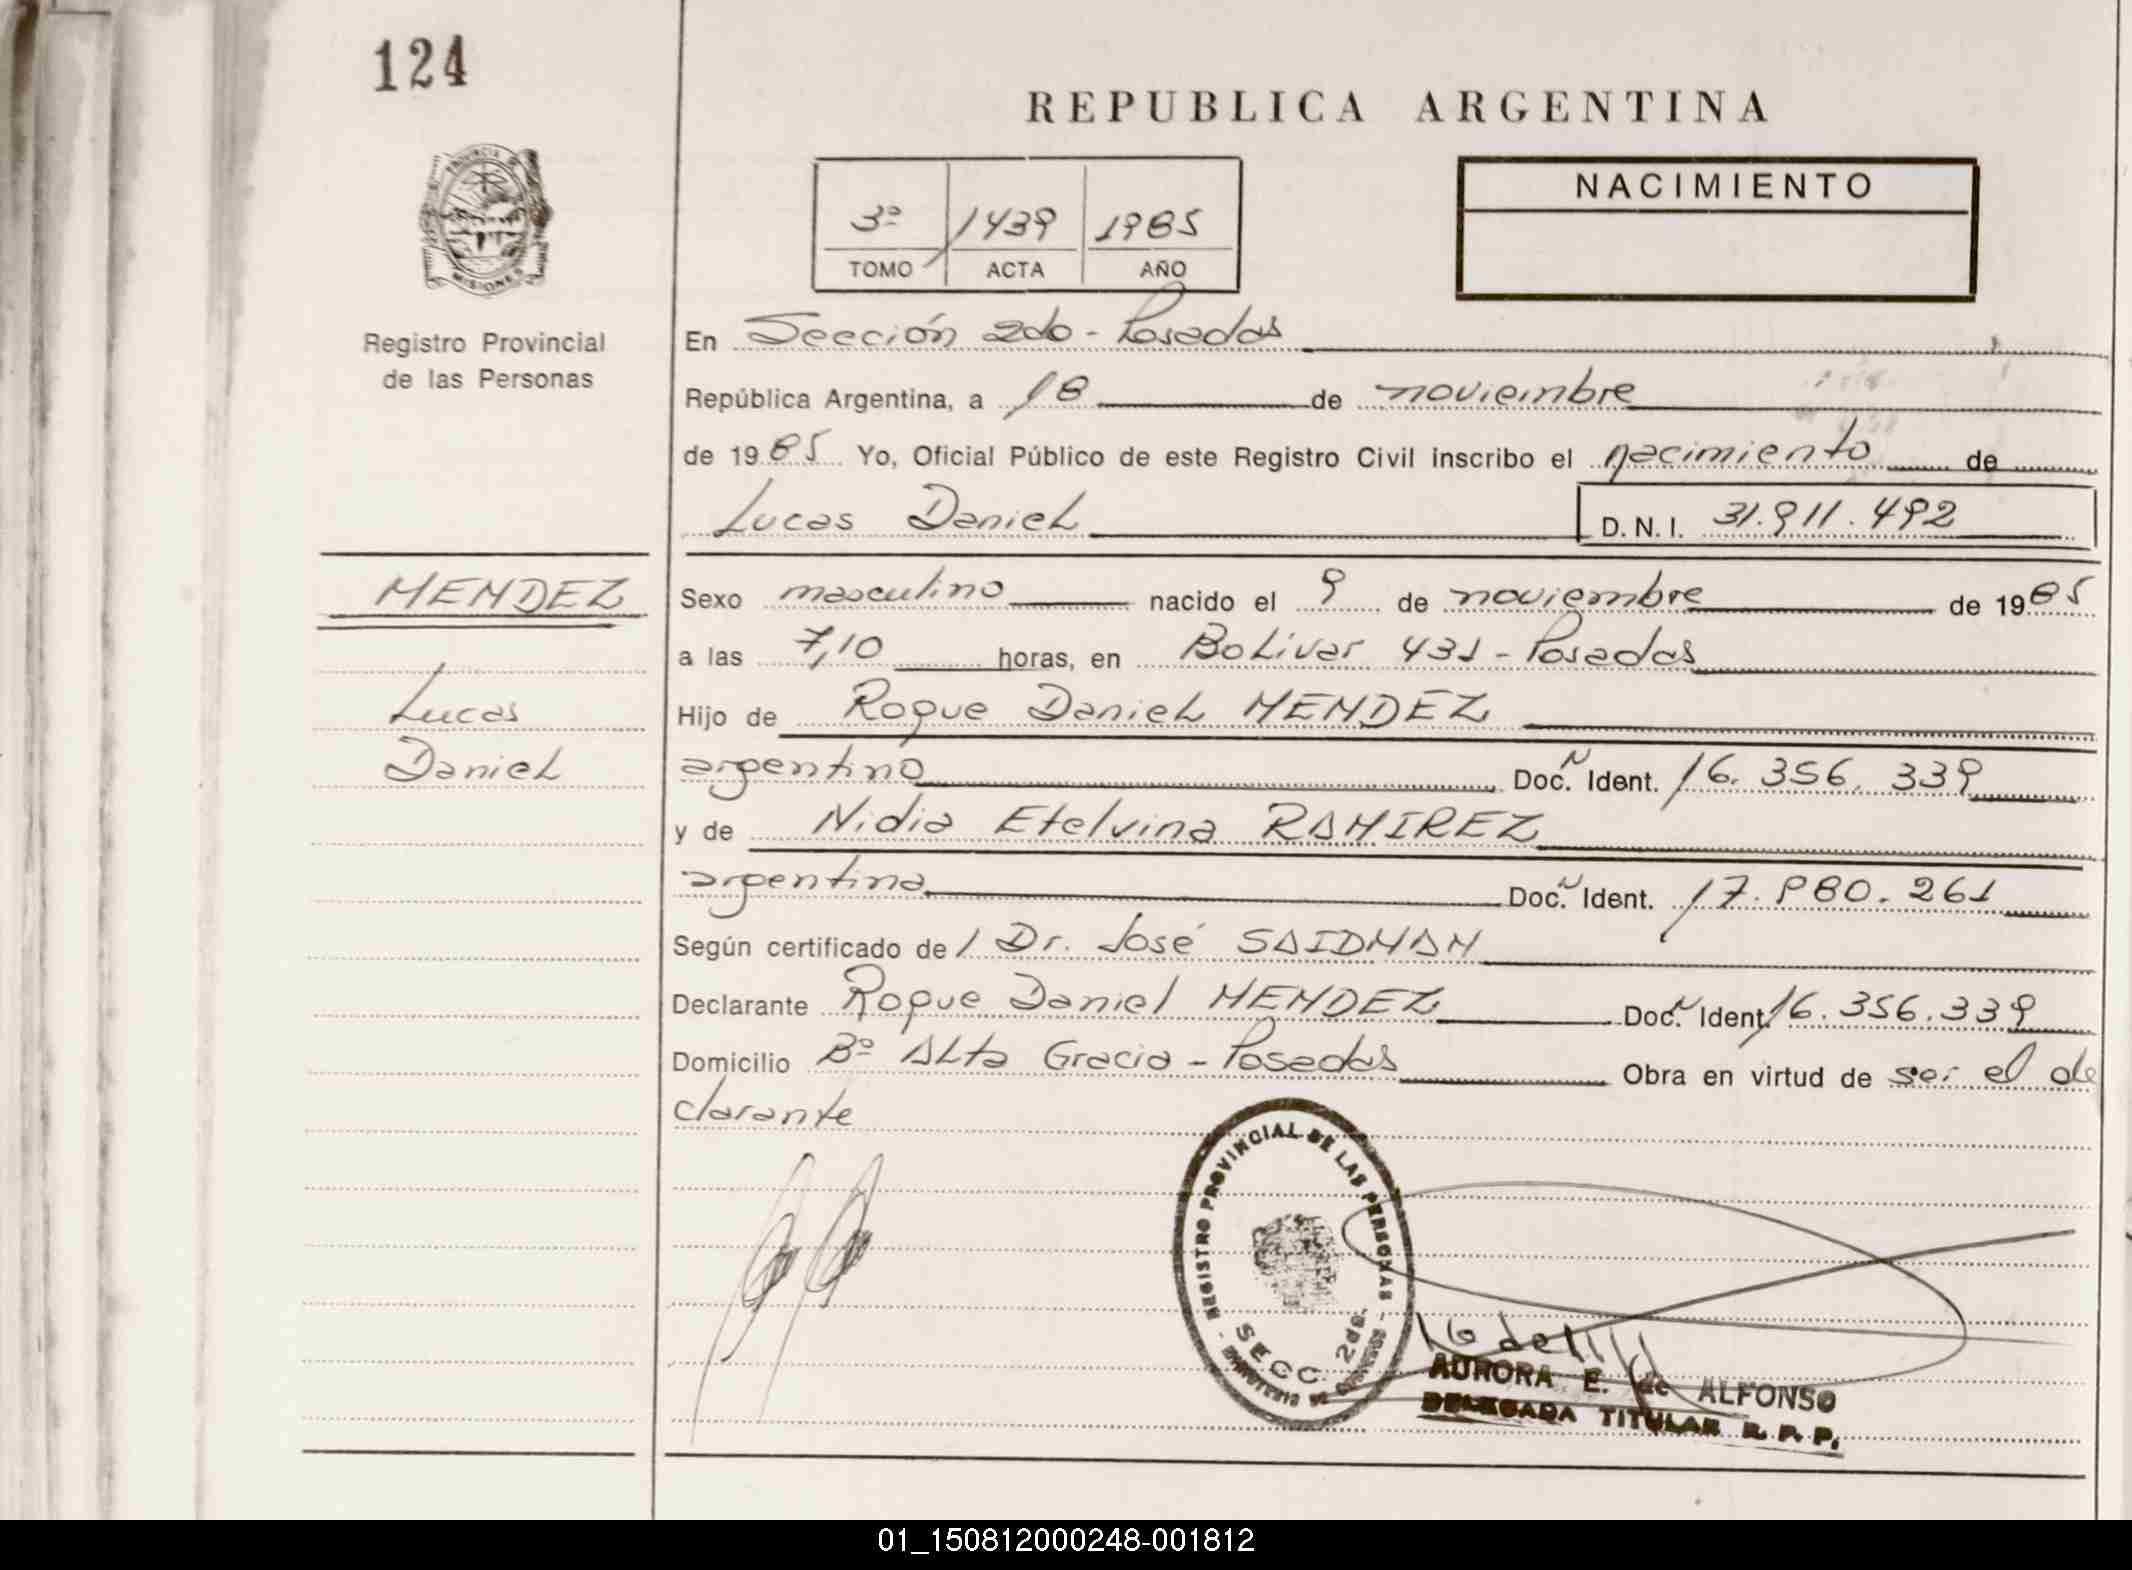 124
REPUBLICA ARGENTINA
PROVINCIA DE MISIONES
3º 1439 1985
TOMO ACTA AÑO
NACIMIENTO
Registro Provincial
de las Personas
En Sección 2do - Posadas
República Argentina, a 18 de noviembre
de 1985 Yo, Oficial Público de este Registro Civil inscribo el nacimiento de
Lucas Daniel D.N.I. 31.911.492
MENDEZ
Lucas
Daniel
Sexo masculino nacido el 9 de noviembre de 1985
a las 7,10 horas, en Bolivar 431 - Posadas
Hijo de Roque Daniel MENDEZ
argentino Doc. N Ident. 16.356.339
y de Nidia Etelvina RAMIREZ
argentina Doc. N Ident. 17.980.261
Según certificado de / Dr. José SAIDMAN
Declarante Roque Daniel MENDEZ Doc. N Ident. 16.356.339
Domicilio Bº Alta Gracia - Posadas Obra en virtud de ser el de
clarante
REGISTRO PROVINCIAL DE LAS PERSONAS
SECC. 2da.
AURORA E. de ALFONSO
DELEGADA TITULAR R. P. P.
01_150812000248-001812